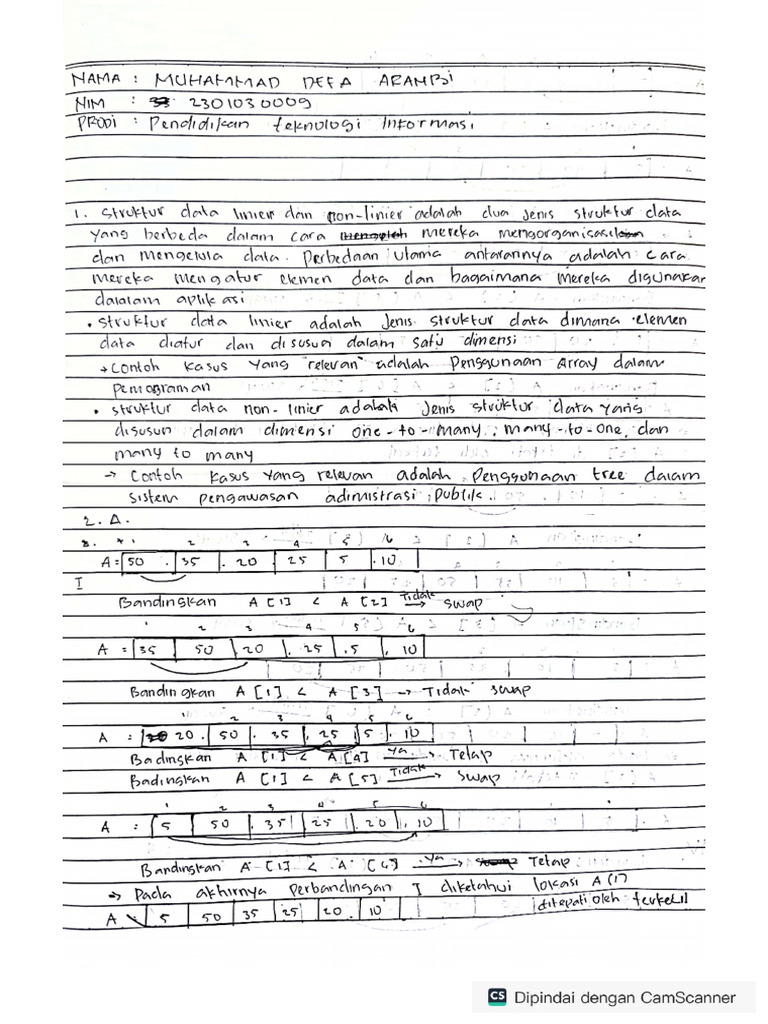 NAMA : MUHAMMAD DEFA ARAMBSi
NIM : 2301030009
PRODI : Pendidikan teknologi Informasi
1. Struktur data linier dan non-linier adalah dua Jenis struktur data
yang berbeda dalam cara mereka mengorganisasi
dan mengelula data. Perbedaan Utama antarannya adalah cara
mereka mengatur elemen data dan bagaimana mereka digunakan
dalalam aplikasi
• Struktur data linier adalah Jenis struktur data dimana elemen
data diatur dan disusun dalam satu dimensi
→ Contoh kasus yang relevan adalah Penggunaan Array dalam
pemograman
• struktur data non-linier adalah Jenis struktur data yang
disusun dalam dimensi one-to-many, many-to-one, dan
many to many
→ Contoh kasus yang relevan adalah Penggunaan tree dalam
sistem pengawasan adimistrasi publik.
2. A.
1 2 3 4 5 6
A= 50 35 20 25 5 10
I
Bandingkan A [1] < A [2] Tidak → swap
1 2 3 4 5 6
A = 35 50 20 25 5 10
Bandingkan A [1] < A [3] → Tidak swap
1 2 3 4 5 6
A : 20 50 35 25 5 10
Badingkan A [1] < A [4] Ya → Tetap
Badingkan A [1] < A [5] Tidak → Swap
1 2 3 4 5 6
A : 5 50 35 25 20 10
Bandingkan A [1] < A [6] Ya → Tetap
→ Pada akhirnya perbandingan I diketahui lokasi A(1)
ditepati oleh terkecil
A 5 50 35 25 20 10
CS Dipindai dengan CamScanner